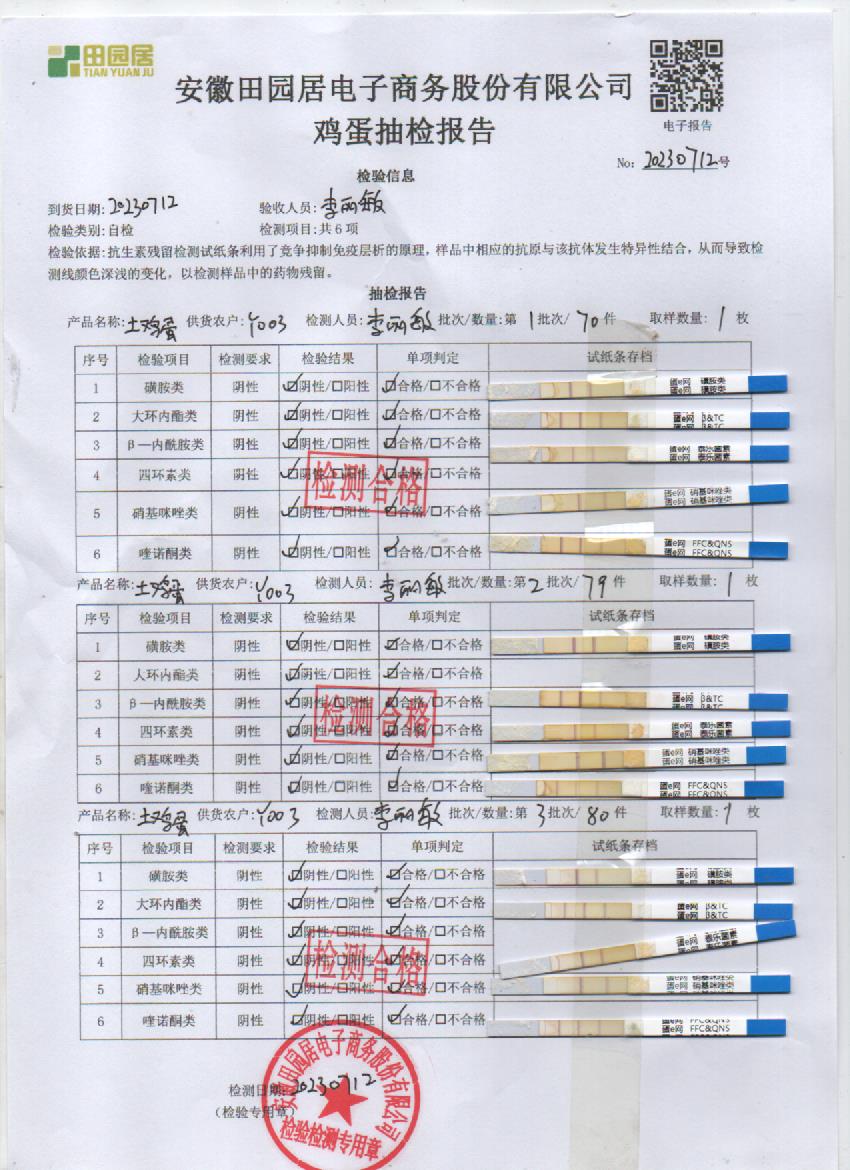 田园居
TIAN YUAN JU
安徽田园居电子商务股份有限公司
鸡蛋抽检报告
电子报告
No: 20230712号
检验信息
到货日期: 20230712 验收人员: 李丽敏
检验类别: 自检 检测项目: 共6项
检验依据: 抗生素残留检测试纸条利用了竞争抑制免疫层析的原理，样品中相应的抗原与该抗体发生特异性结合，从而导致检
测线颜色深浅的变化，以检测样品中的药物残留。
抽检报告
产品名称: 土鸡蛋 供货农户: Y003 检测人员: 李丽敏 批次/数量: 第1批次/70件 取样数量: 1枚
序号 检验项目 检测要求 检验结果 单项判定 试纸条存档
1 磺胺类 阴性 ☑阴性/□阳性 ☑合格/□不合格 蛋e网 磺胺类 蛋e网 磺胺类
2 大环内酯类 阴性 ☑阴性/□阳性 ☑合格/□不合格 蛋e网 β&TC 蛋e网 β&TC
3 β—内酰胺类 阴性 ☑阴性/□阳性 ☑合格/□不合格 蛋e网 泰乐菌素 蛋e网 泰乐菌素
4 四环素类 阴性 ☑阴性/□阳性 ☑合格/□不合格
5 硝基咪唑类 阴性 ☑阴性/□阳性 ☑合格/□不合格 蛋e网 硝基咪唑类 蛋e网 硝基咪唑类
6 喹诺酮类 阴性 ☑阴性/□阳性 ☑合格/□不合格 蛋e网 FFC&QNS 蛋e网 FFC&QNS
检测合格
产品名称: 土鸡蛋 供货农户: Y003 检测人员: 李丽敏 批次/数量: 第2批次/79件 取样数量: 1枚
序号 检验项目 检测要求 检验结果 单项判定 试纸条存档
1 磺胺类 阴性 ☑阴性/□阳性 ☑合格/□不合格 蛋e网 磺胺类 蛋e网 磺胺类
2 大环内酯类 阴性 ☑阴性/□阳性 ☑合格/□不合格
3 β—内酰胺类 阴性 ☑阴性/□阳性 ☑合格/□不合格 蛋e网 β&TC 蛋e网 β&TC
4 四环素类 阴性 ☑阴性/□阳性 ☑合格/□不合格 蛋e网 泰乐菌素 蛋e网 泰乐菌素
5 硝基咪唑类 阴性 ☑阴性/□阳性 ☑合格/□不合格 蛋e网 硝基咪唑类 蛋e网 硝基咪唑类
6 喹诺酮类 阴性 ☑阴性/□阳性 ☑合格/□不合格 蛋e网 FFC&QNS 蛋e网 FFC&QNS
检测合格
产品名称: 土鸡蛋 供货农户: Y003 检测人员: 李丽敏 批次/数量: 第3批次/80件 取样数量: 1枚
序号 检验项目 检测要求 检验结果 单项判定 试纸条存档
1 磺胺类 阴性 ☑阴性/□阳性 ☑合格/□不合格 蛋e网 磺胺类 蛋e网 磺胺类
2 大环内酯类 阴性 ☑阴性/□阳性 ☑合格/□不合格 蛋e网 β&TC 蛋e网 β&TC
3 β—内酰胺类 阴性 ☑阴性/□阳性 ☑合格/□不合格 蛋e网 泰乐菌素 蛋e网 泰乐菌素
4 四环素类 阴性 ☑阴性/□阳性 ☑合格/□不合格
5 硝基咪唑类 阴性 ☑阴性/□阳性 ☑合格/□不合格 蛋e网 硝基咪唑类 蛋e网 硝基咪唑类
6 喹诺酮类 阴性 ☑阴性/□阳性 ☑合格/□不合格 蛋e网 FFC&QNS 蛋e网 FFC&QNS
检测合格
检测日期: 20230712
（检验专用章）
安徽田园居电子商务股份有限公司
检验检测专用章